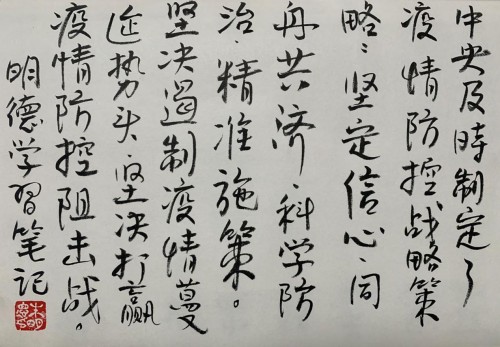 中央及時制定了
疫情防控战略策
略、坚定信心、同
舟共济、科学防
治、精准施策。
坚决遏制疫情蔓
延势头、坚决打赢
疫情防控阻击战。
明德学習笔记